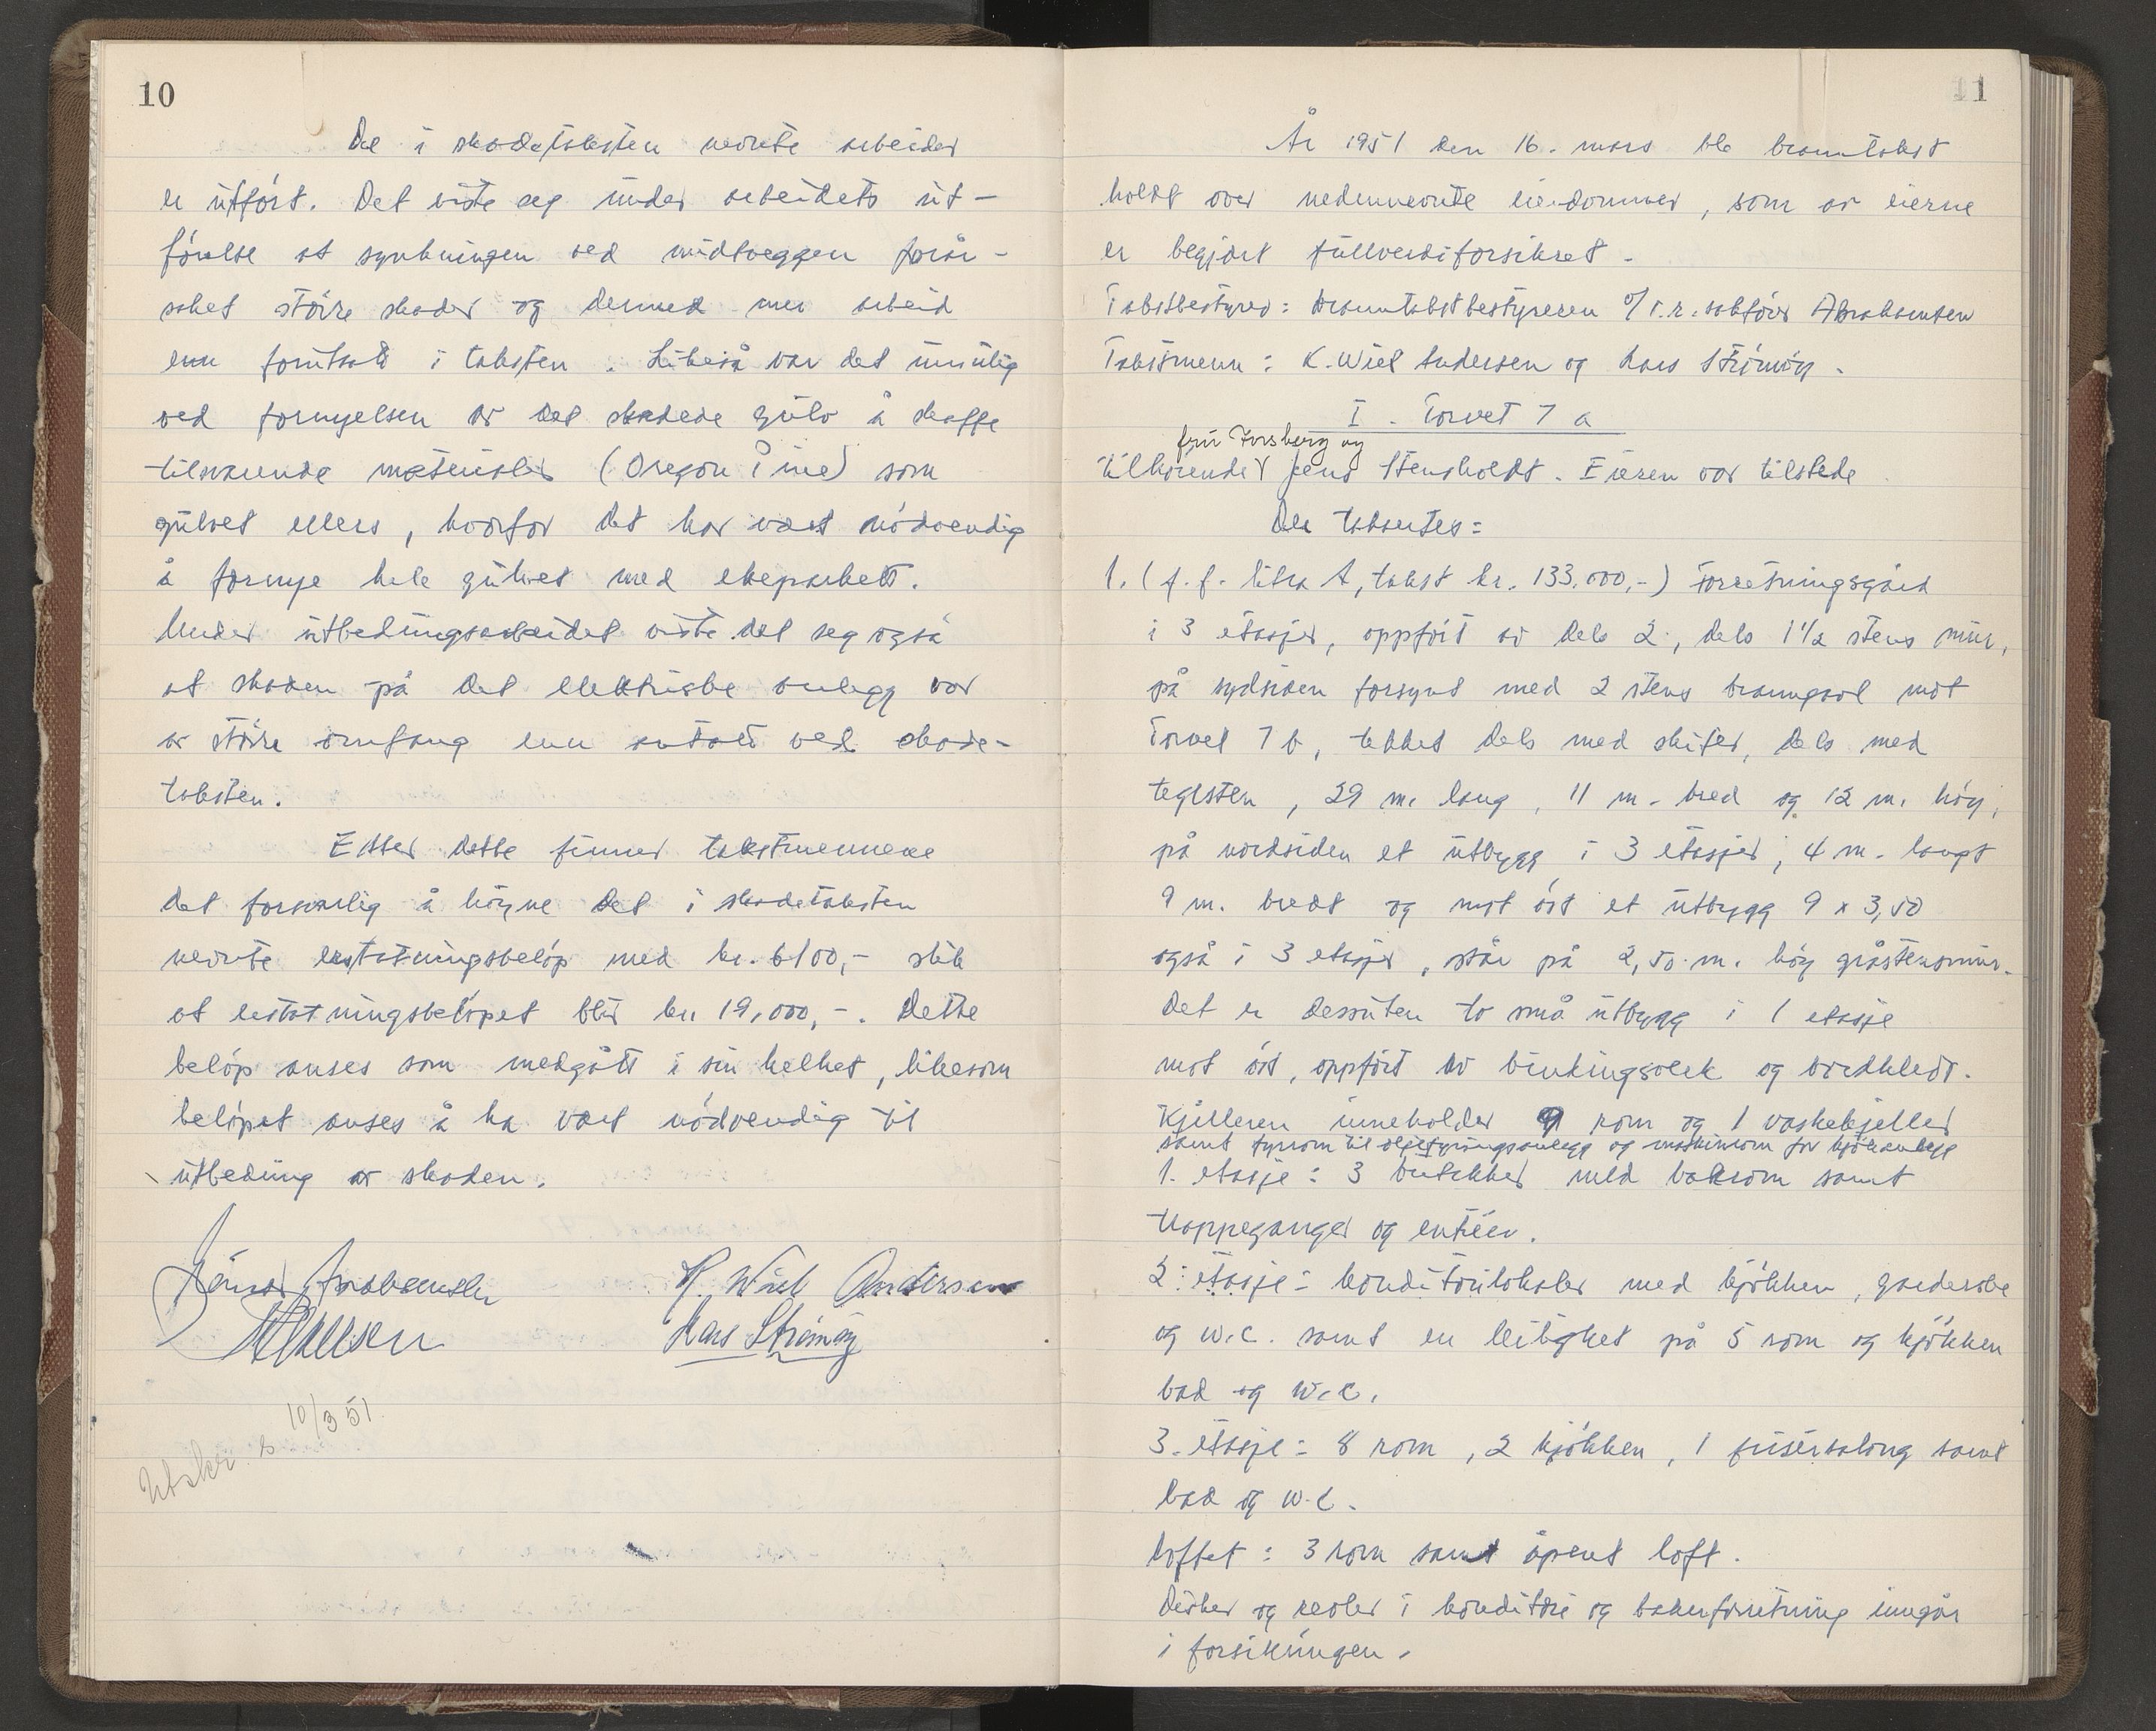 10
De i skadetaksten nevnte arbeider
er utført. Det viste seg under arbeidets ut-
førelse at synkningen ved midtveggen forår-
saket større skader og dermed mer arbeid
enn forutsatt i taksten. Likeså var det umulig
ved fornyelsen av det skadede gulv å skaffe
tilsvarende materialer (Oregon Pine) som
gulvet ellers, hvorfor det har vært nødvendig
å fornye hele gulvet med ekeparkett.
Under utbedringsarbeidet viste det seg også
at skaden på det elektriske anlegg var
av større omfang enn antatt ved skade-
taksten.
Etter dette finner takstmennene
det forsvarlig å høyne det i skadetaksten
nevnte erstatningsbeløp med kr. 6100,- slik
at erstatningsbeløpet blir kr. 19.000,-. Dette
beløp anses som medgått i sin helhet, likesom
beløpet anses å ha vært nødvendig til
utbedring av skaden.
Abrahamsen K. Wiel Andersen
Hans Strømøy
Utskr. 10/3 51
11
År 1951 den 16. mars ble branntakst
holdt over nedennevnte eiendommer, som av eierne
er begjært fullverdiforsikret.
Takstbestyrer: branntakstbestyreren v/ o.r.sakfører Abrahamsen
Takstmenn: K. Wiel Andersen og Hans Strømøy.
I. Torvet 7 a
fru Forsberg og
tilhørende Jens Stensholdt. Eieren var tilstede
Der taksertes:
1. (f.f. litra A, takst kr. 133.000,-) Forretningsgård
i 3 etasjer, oppført av dels 2, dels 1 1/2 stens mur,
på sydsiden forsynt med 2 stens branngavl mot
Torvet 7 b, tekket dels med skifer, dels med
teglsten, 29 m. lang, 11 m. bred og 12 m. høy,
på nordsiden et utbygg i 3 etasjer, 4 m. langt
9 m. bredt og mot øst et utbygg 9 x 3,50
også i 3 etasjer, står på 2,50 m. høy gråstensmur.
Det er dessuten to små utbygg i 1 etasje
mot øst, oppført av bindingsverk og bordkledt.
Kjelleren inneholder 9 rom og 1 vaskekjeller
samt fyrrom til oljefyringsanlegg og maskinrom for kjøleanlegg
1. etasje: 3 butikker med bakrom samt
trappeganger og entréer.
2. etasje: konditorilokaler med kjøkken, garderobe
og w.c. samt en leilighet på 5 rom og kjøkken
bad og w.c.
3. etasje: 8 rom, 2 kjøkken, 1 frisersalong samt
bad og w.c.
Loftet: 3 rom samt åpent loft.
Disker og reoler i konditori og bakerforretning inngår
i forsikringen.